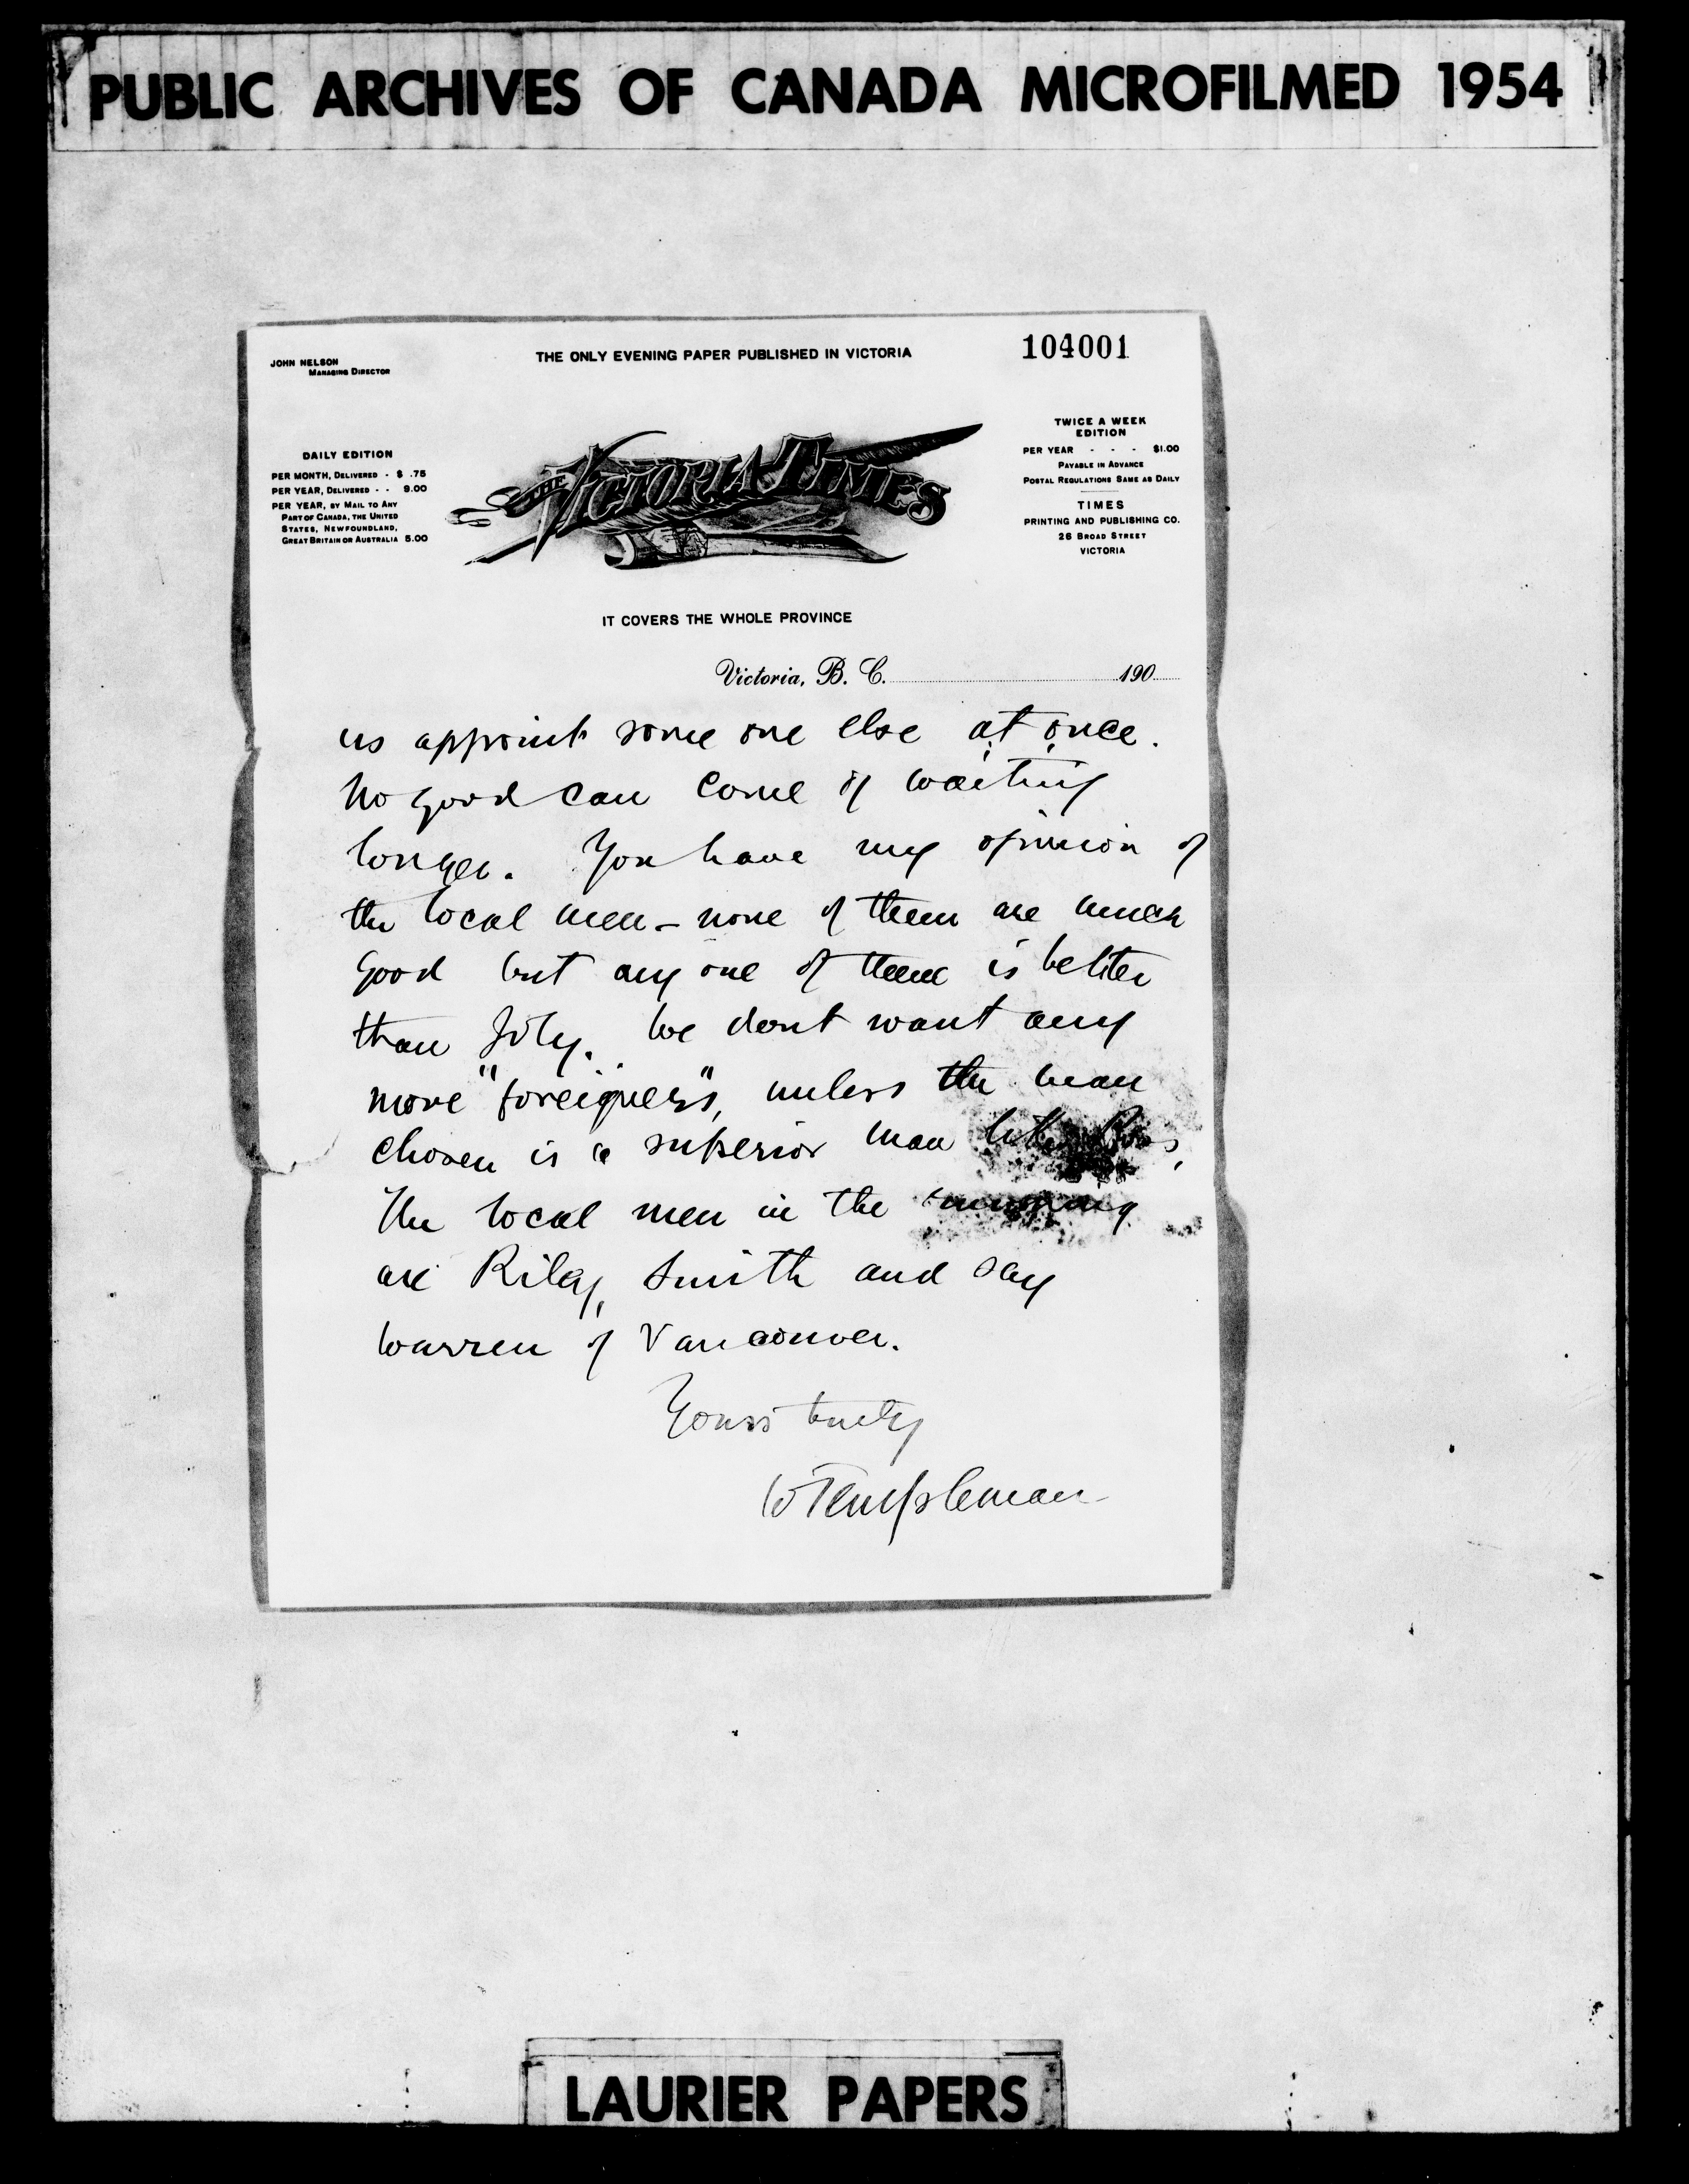 PUBLIC ARCHIVES OF CANADA MICROFILMED 1954
104001
JOHN NELSON
MANAGING DIRECTOR
THE ONLY EVENING PAPER PUBLISHED IN VICTORIA
DAILY EDITION
PER MONTH, DELIVERED - $ .75
PER YEAR, DELIVERED - - 9.00
PER YEAR, BY MAIL TO ANY
PART OF CANADA, THE UNITED
STATES, NEWFOUNDLAND,
GREAT BRITAIN OR AUSTRALIA 5.00
THE VICTORIA TIMES
TWICE A WEEK
EDITION
PER YEAR - - - $1.00
PAYABLE IN ADVANCE
POSTAL REGULATIONS SAME AS DAILY
TIMES
PRINTING AND PUBLISHING CO.
26 BROAD STREET
VICTORIA
IT COVERS THE WHOLE PROVINCE
Victoria, B. C. 190
us appoint some one else at once.
No good can come of waiting
longer. You have my opinion of
the local men - none of them are much
good but any one of them is better
than Joly. We dont want any
more "foreigners", unless the man
chosen is a superior man like Ross,
The local men in the running
are Riley, Smith and say
Warren of Vancouver.
Yours truly
W Templeman
LAURIER PAPERS